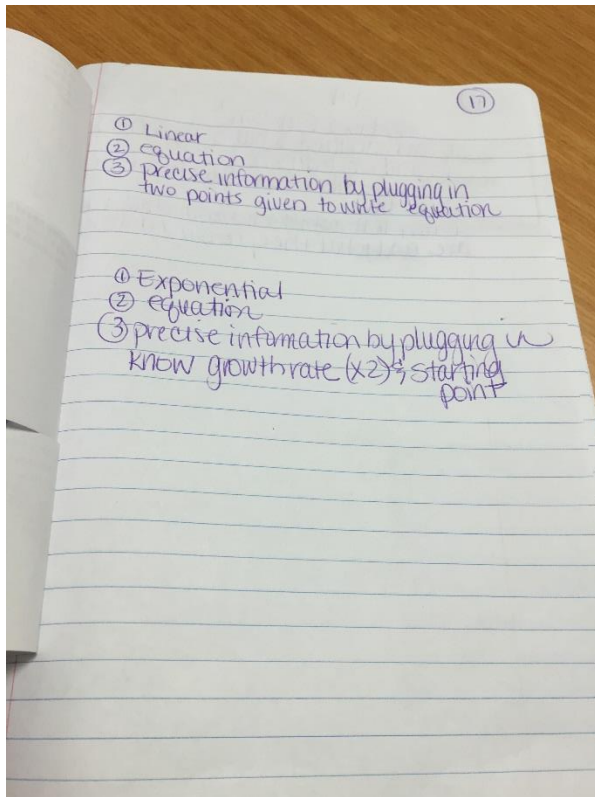 17
① Linear
② equation
③ precise information by plugging in
two points given to write equation
① Exponential
② equation
③ precise information by plugging in
know growth rate (x2) & starting
point